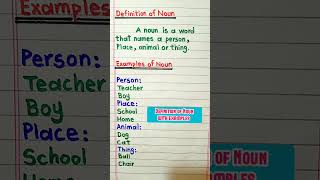 Definition of Noun
A noun is a word
that names a person,
Place, animal or thing.
Examples of Noun
Person:
Teacher
Boy
Place:
School
Home
Animal:
Dog
Cat
Thing:
Ball
Chair
DEFINITION OF NOUN
WITH EXAMPLES
Examples
Person:
Teacher
Boy
Place:
School
Home
of Noun